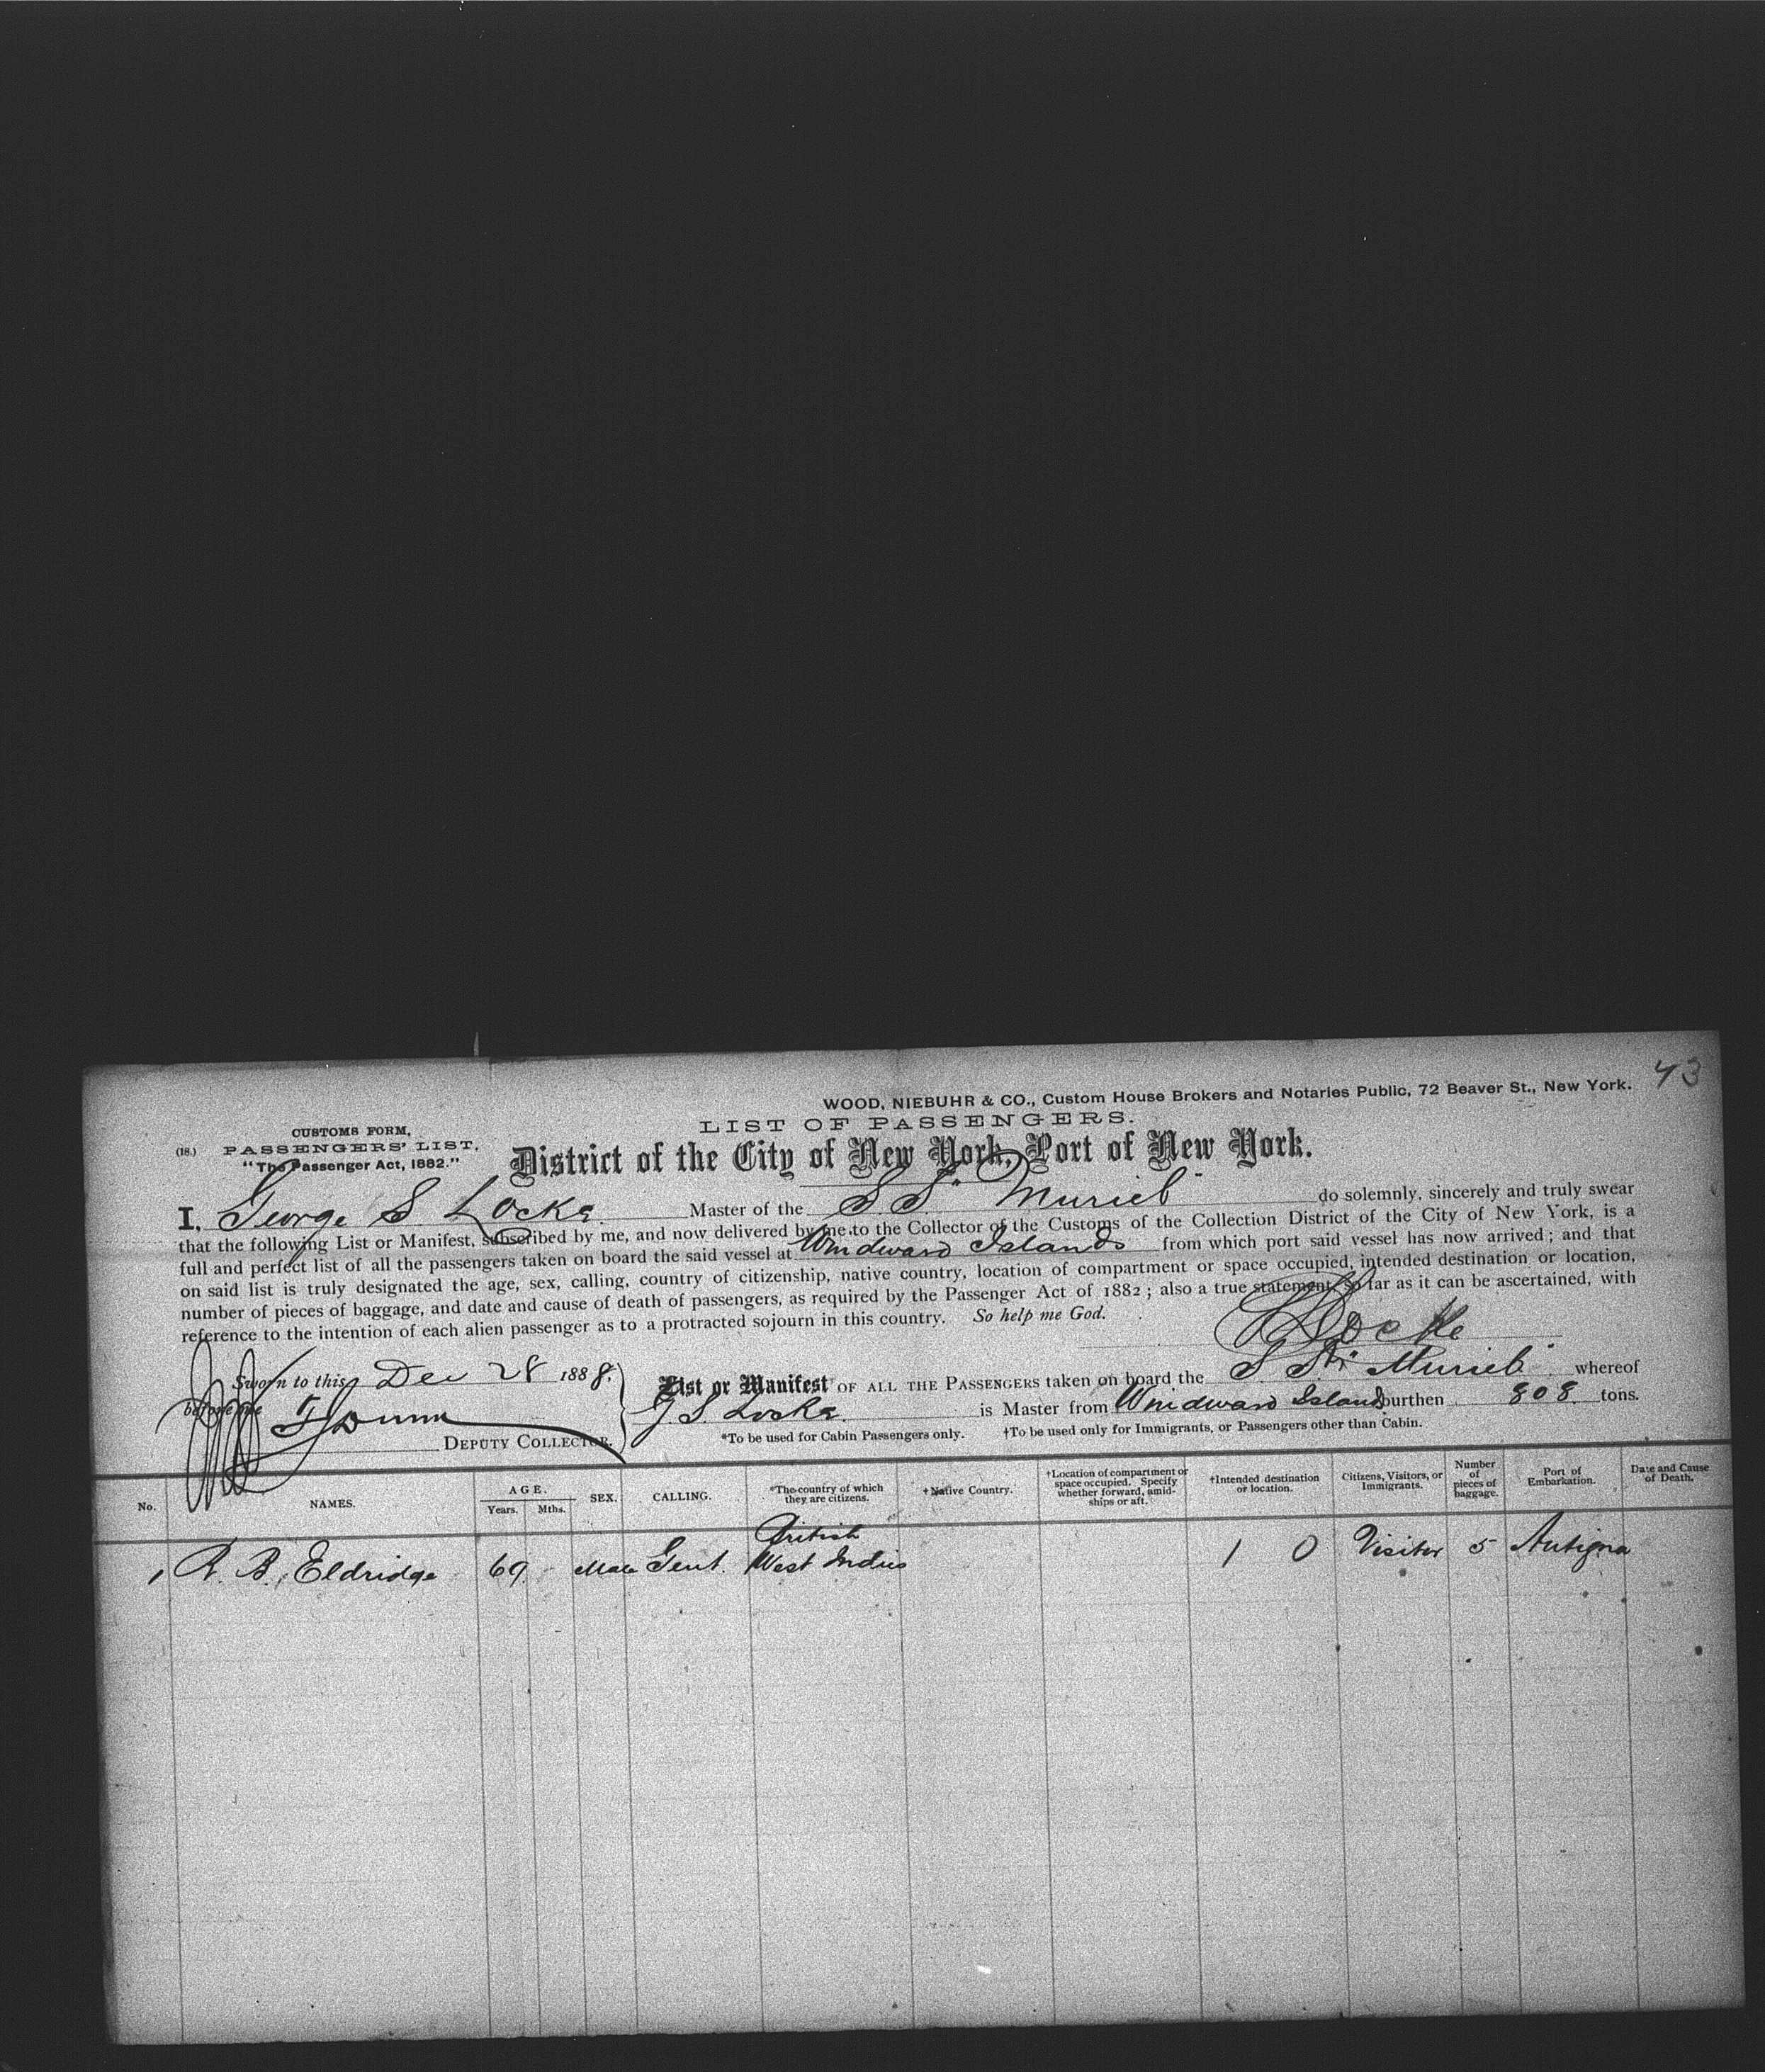 43
WOOD, NIEBUHR & CO., Custom House Brokers and Notaries Public, 72 Beaver St., New York.
LIST OF PASSENGERS.
(18.) CUSTOMS FORM,
PASSENGERS' LIST.
"The Passenger Act, 1882."
District of the City of New York, Port of New York.
I, George S Locke Master of the S S "Muriel" do solemnly, sincerely and truly swear
that the following List or Manifest, subscribed by me, and now delivered by me to the Collector of the Customs of the Collection District of the City of New York, is a
full and perfect list of all the passengers taken on board the said vessel at Windward Islands from which port said vessel has now arrived; and that
on said list is truly designated the age, sex, calling, country of citizenship, native country, location of compartment or space occupied, intended destination or location,
number of pieces of baggage, and date and cause of death of passengers, as required by the Passenger Act of 1882; also a true statement, so far as it can be ascertained, with
reference to the intention of each alien passenger as to a protracted sojourn in this country. So help me God.
Locke
Sworn to this Dec 28 1888.
before me
Dunn
DEPUTY COLLECTOR.
List or Manifest OF ALL THE PASSENGERS taken on board the S. Str "Muriel" whereof
G S. Locke is Master from Windward Islands burthen 808 tons.
*To be used for Cabin Passengers only. †To be used only for Immigrants, or Passengers other than Cabin.
No. NAMES. AGE. Years. Mths. SEX. CALLING. *The country of which they are citizens. †Native Country. †Location of compartment or space occupied. Specify whether forward, amidships or aft. †Intended destination or location. Citizens, Visitors, or Immigrants. Number of pieces of baggage. Port of Embarkation. Date and Cause of Death.
British
1 A. B. Eldridge 69 Male Gent. West Indies 1 0 Visitor 5 Antigua